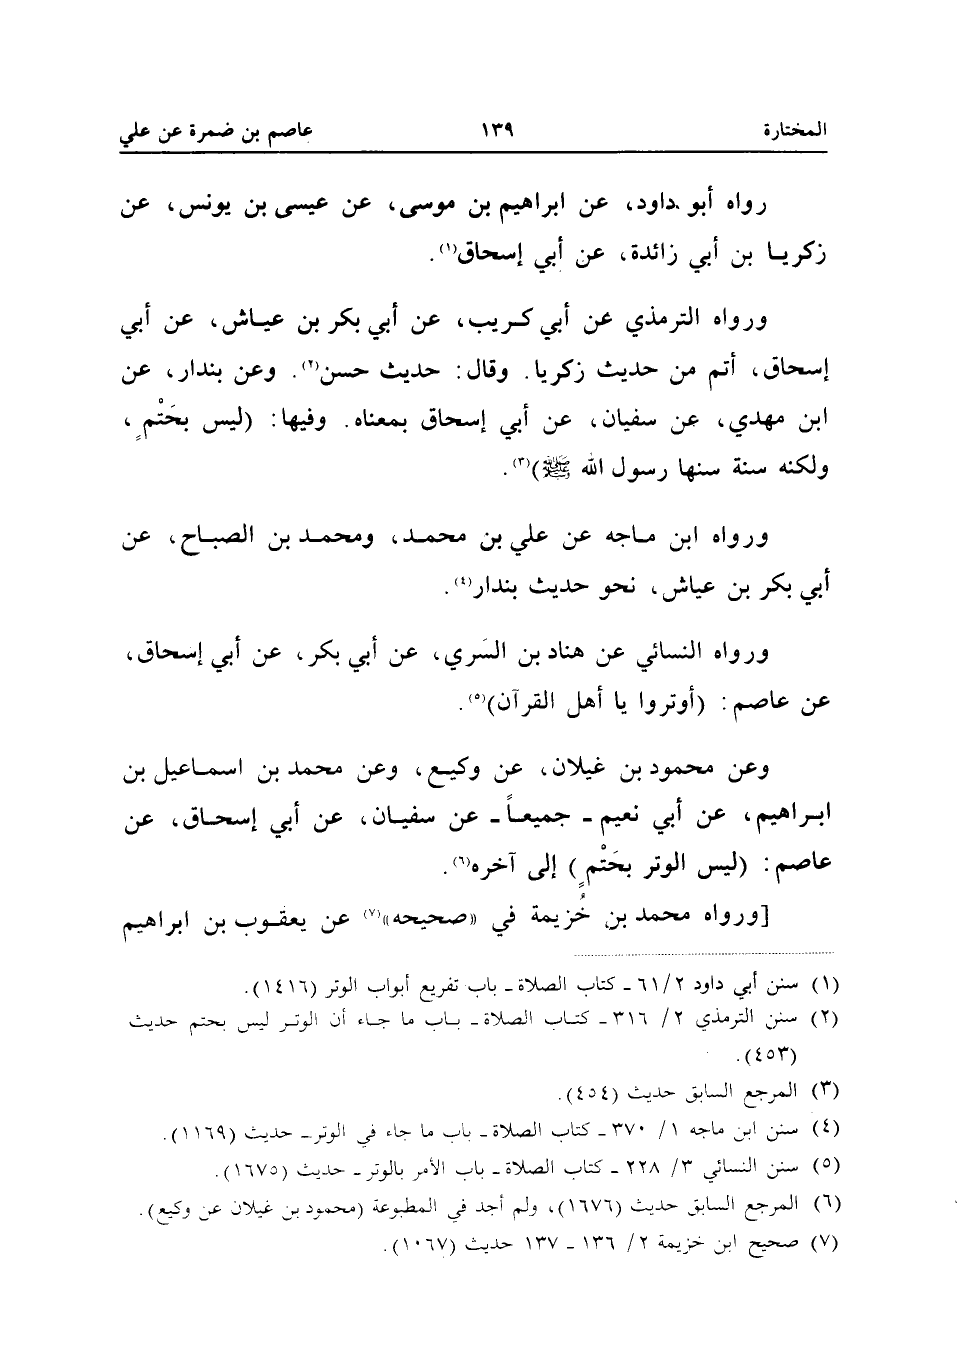 المختارة ١٣٩ عاصم بن ضمرة عن علي
رواه أبو داود، عن ابراهيم بن موسى، عن عيسى بن يونس، عن
زكريا بن أبي زائدة، عن أبي إسحاق(١).
ورواه الترمذي عن أبي كريب، عن أبي بكر بن عياش، عن أبي
إسحاق، أتم من حديث زكريا. وقال: حديث حسن(٢). وعن بندار، عن
ابن مهدي، عن سفيان، عن أبي إسحاق بمعناه. وفيها: (ليس بحَتْمٍ،
ولكنه سنة سنها رسول الله ﷺ)(٣).
ورواه ابن ماجه عن علي بن محمد، ومحمد بن الصباح، عن
أبي بكر بن عياش، نحو حديث بندار(٤).
ورواه النسائي عن هناد بن السَري، عن أبي بكر، عن أبي إسحاق،
عن عاصم: (أوتروا يا أهل القرآن)(٥).
وعن محمود بن غيلان، عن وكيع، وعن محمد بن اسماعيل بن
ابراهيم، عن أبي نعيم ـ جميعاً ـ عن سفيان، عن أبي إسحاق، عن
عاصم: (ليس الوتر بحَتْمٍ) إلى آخره(٦).
[ورواه محمد بن خُزيمة في «صحيحه»(٧) عن يعقوب بن ابراهيم
(١) سنن أبي داود ٢/ ٦١ ـ كتاب الصلاة ـ باب تفريع أبواب الوتر (١٤١٦).
(٢) سنن الترمذي ٢/ ٣١٦ ـ كتاب الصلاة ـ باب ما جاء أن الوتر ليس بحتم حديث
(٤٥٣).
(٣) المرجع السابق حديث (٤٥٤).
(٤) سنن ابن ماجه ١/ ٣٧٠ ـ كتاب الصلاة ـ باب ما جاء في الوتر ـ حديث (١١٦٩).
(٥) سنن النسائي ٣/ ٢٢٨ ـ كتاب الصلاة ـ باب الأمر بالوتر ـ حديث (١٦٧٥).
(٦) المرجع السابق حديث (١٦٧٦)، ولم أجد في المطبوعة (محمود بن غيلان عن وكيع).
(٧) صحيح ابن خزيمة ٢/ ١٣٦ ـ ١٣٧ حديث (١٠٦٧).